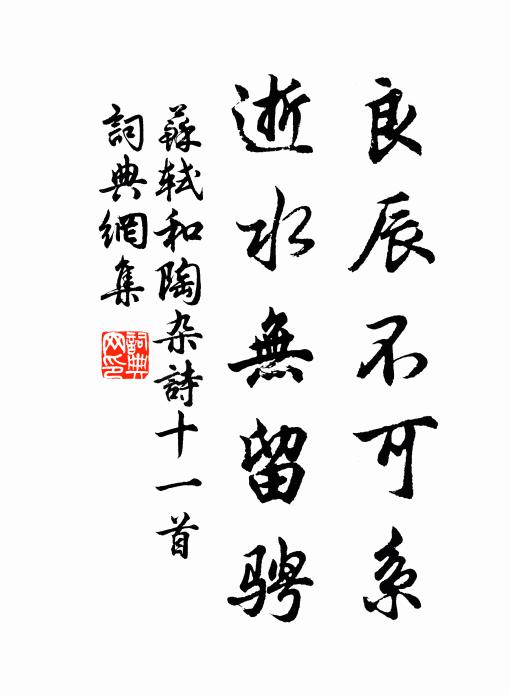 良辰不可系
逝水無留騁
蘇轼和陶杂詩十一首
詞典網集
詞典
网印